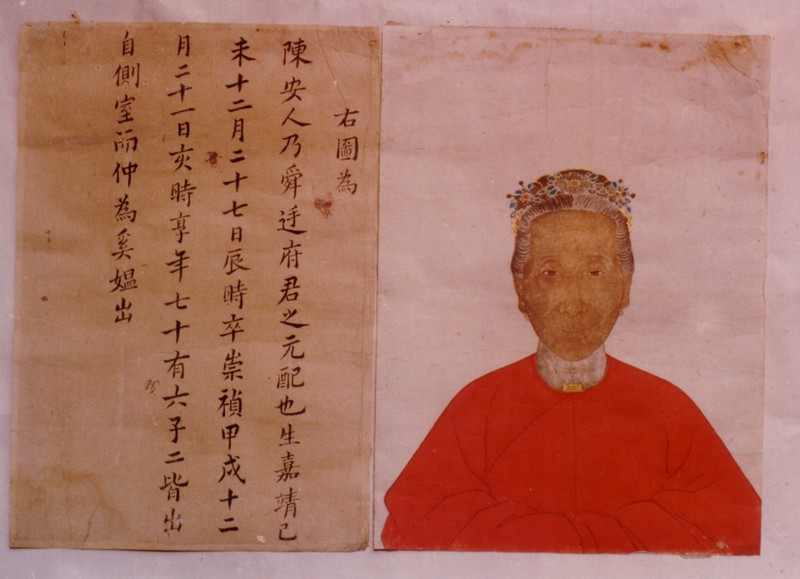 右圖為
陳安人乃舜迓府君之元配也生嘉靖己
未十二月二十七日辰時卒崇禎甲戌十二
月二十一日亥時享年七十有六子二皆出
自側室而仲為奚媪出